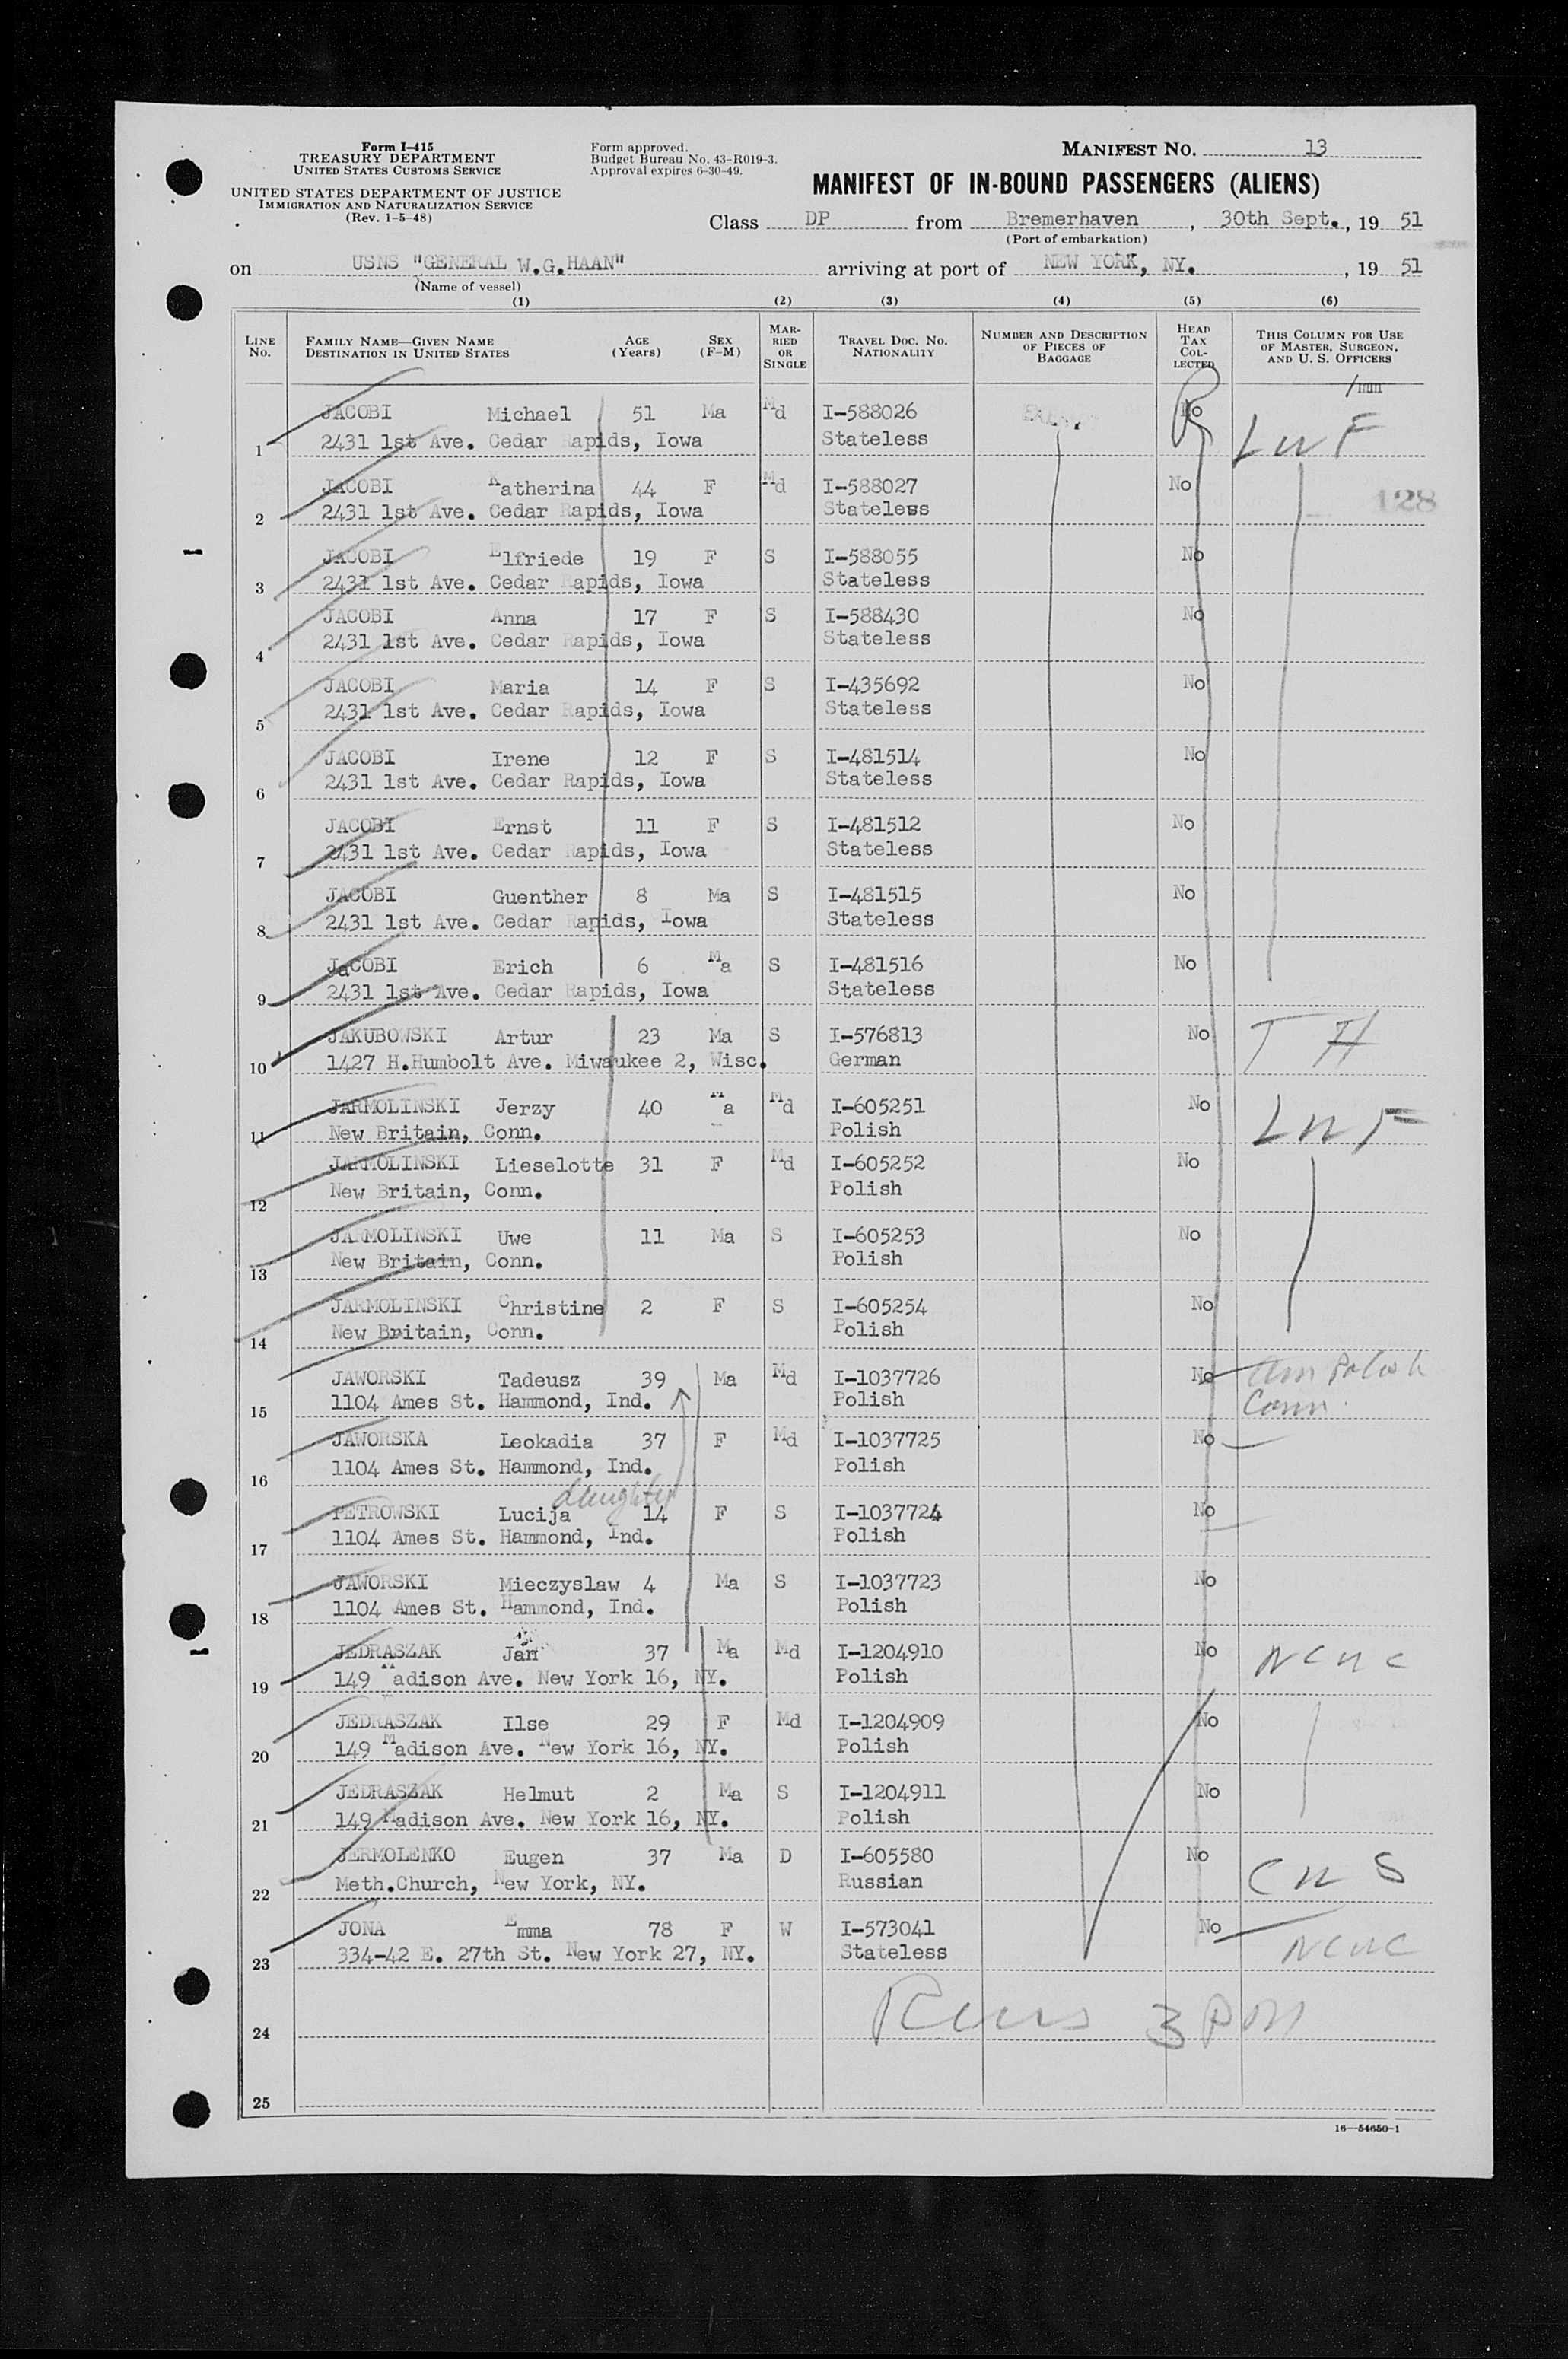 Form I-415
TREASURY DEPARTMENT
UNITED STATES CUSTOMS SERVICE
UNITED STATES DEPARTMENT OF JUSTICE
IMMIGRATION AND NATURALIZATION SERVICE
(Rev. 1-5-48)
Form approved.
Budget Bureau No. 43-R019-3.
Approval expires 6-30-49.
MANIFEST NO. 13
MANIFEST OF IN-BOUND PASSENGERS (ALIENS)
Class DP from Bremerhaven, 30th Sept., 19 51
(Port of embarkation)
on USNS "GENERAL W.G.HAAN" arriving at port of NEW YORK, NY., 19 51
(Name of vessel)
(1) (2) (3) (4) (5) (6)
LINE No. FAMILY NAME—GIVEN NAME DESTINATION IN UNITED STATES AGE (Years) SEX (F-M) MARRIED OR SINGLE TRAVEL DOC. NO. NATIONALITY NUMBER AND DESCRIPTION OF PIECES OF BAGGAGE HEAD TAX COLLECTED THIS COLUMN FOR USE OF MASTER, SURGEON, AND U. S. OFFICERS
JACOBI Michael 51 Ma Md I-588026 No LWF
1 2431 1st Ave. Cedar Rapids, Iowa Stateless
JACOBI Katherina 44 F Md I-588027 No 128
2 2431 1st Ave. Cedar Rapids, Iowa Stateless
JACOBI Elfriede 19 F S I-588055 No
3 2431 1st Ave. Cedar Rapids, Iowa Stateless
JACOBI Anna 17 F S I-588430 No
4 2431 1st Ave. Cedar Rapids, Iowa Stateless
JACOBI Maria 14 F S I-435692 No
5 2431 1st Ave. Cedar Rapids, Iowa Stateless
JACOBI Irene 12 F S I-481514 No
6 2431 1st Ave. Cedar Rapids, Iowa Stateless
JACOBI Ernst 11 F S I-481512 No
7 2431 1st Ave. Cedar Rapids, Iowa Stateless
JACOBI Guenther 8 Ma S I-481515 No
8 2431 1st Ave. Cedar Rapids, Iowa Stateless
JaCOBI Erich 6 Ma S I-481516 No
9 2431 1st Ave. Cedar Rapids, Iowa Stateless
JAKUBOWSKI Artur 23 Ma S I-576813 No T H
10 1427 H.Humbolt Ave. Miwaukee 2, Wisc. German
JARMOLINSKI Jerzy 40 Ma Md I-605251 No LWF
11 New Britain, Conn. Polish
JARMOLINSKI Lieselotte 31 F Md I-605252 No
12 New Britain, Conn. Polish
JARMOLINSKI Uwe 11 Ma S I-605253 No
13 New Britain, Conn. Polish
JARMOLINSKI Christine 2 F S I-605254 No
14 New Britain, Conn. Polish
JAWORSKI Tadeusz 39 Ma Md I-1037726 No Am Polish
15 1104 Ames St. Hammond, Ind. Polish Comm.
JAWORSKA Leokadia 37 F Md I-1037725 No
16 1104 Ames St. Hammond, Ind. Polish
daughter
PETROWSKI Lucija 14 F S I-1037724 No
17 1104 Ames St. Hammond, Ind. Polish
JAWORSKI Mieczyslaw 4 Ma S I-1037723 No
18 1104 Ames St. Hammond, Ind. Polish
JEDRASZAK Jan 37 Ma Md I-1204910 No NCWC
19 149 Madison Ave. New York 16, NY. Polish
JEDRASZAK Ilse 29 F Md I-1204909 No
20 149 Madison Ave. New York 16, NY. Polish
JEDRASZAK Helmut 2 Ma S I-1204911 No
21 149 Madison Ave. New York 16, NY. Polish
JERMOLENKO Eugen 37 Ma D I-605580 No CWS
22 Meth.Church, New York, NY. Russian
JONA Emma 78 F W I-573041 No
23 334-42 E. 27th St. New York 27, NY. Stateless NCWC
24 3 PM
25
16—54650-1